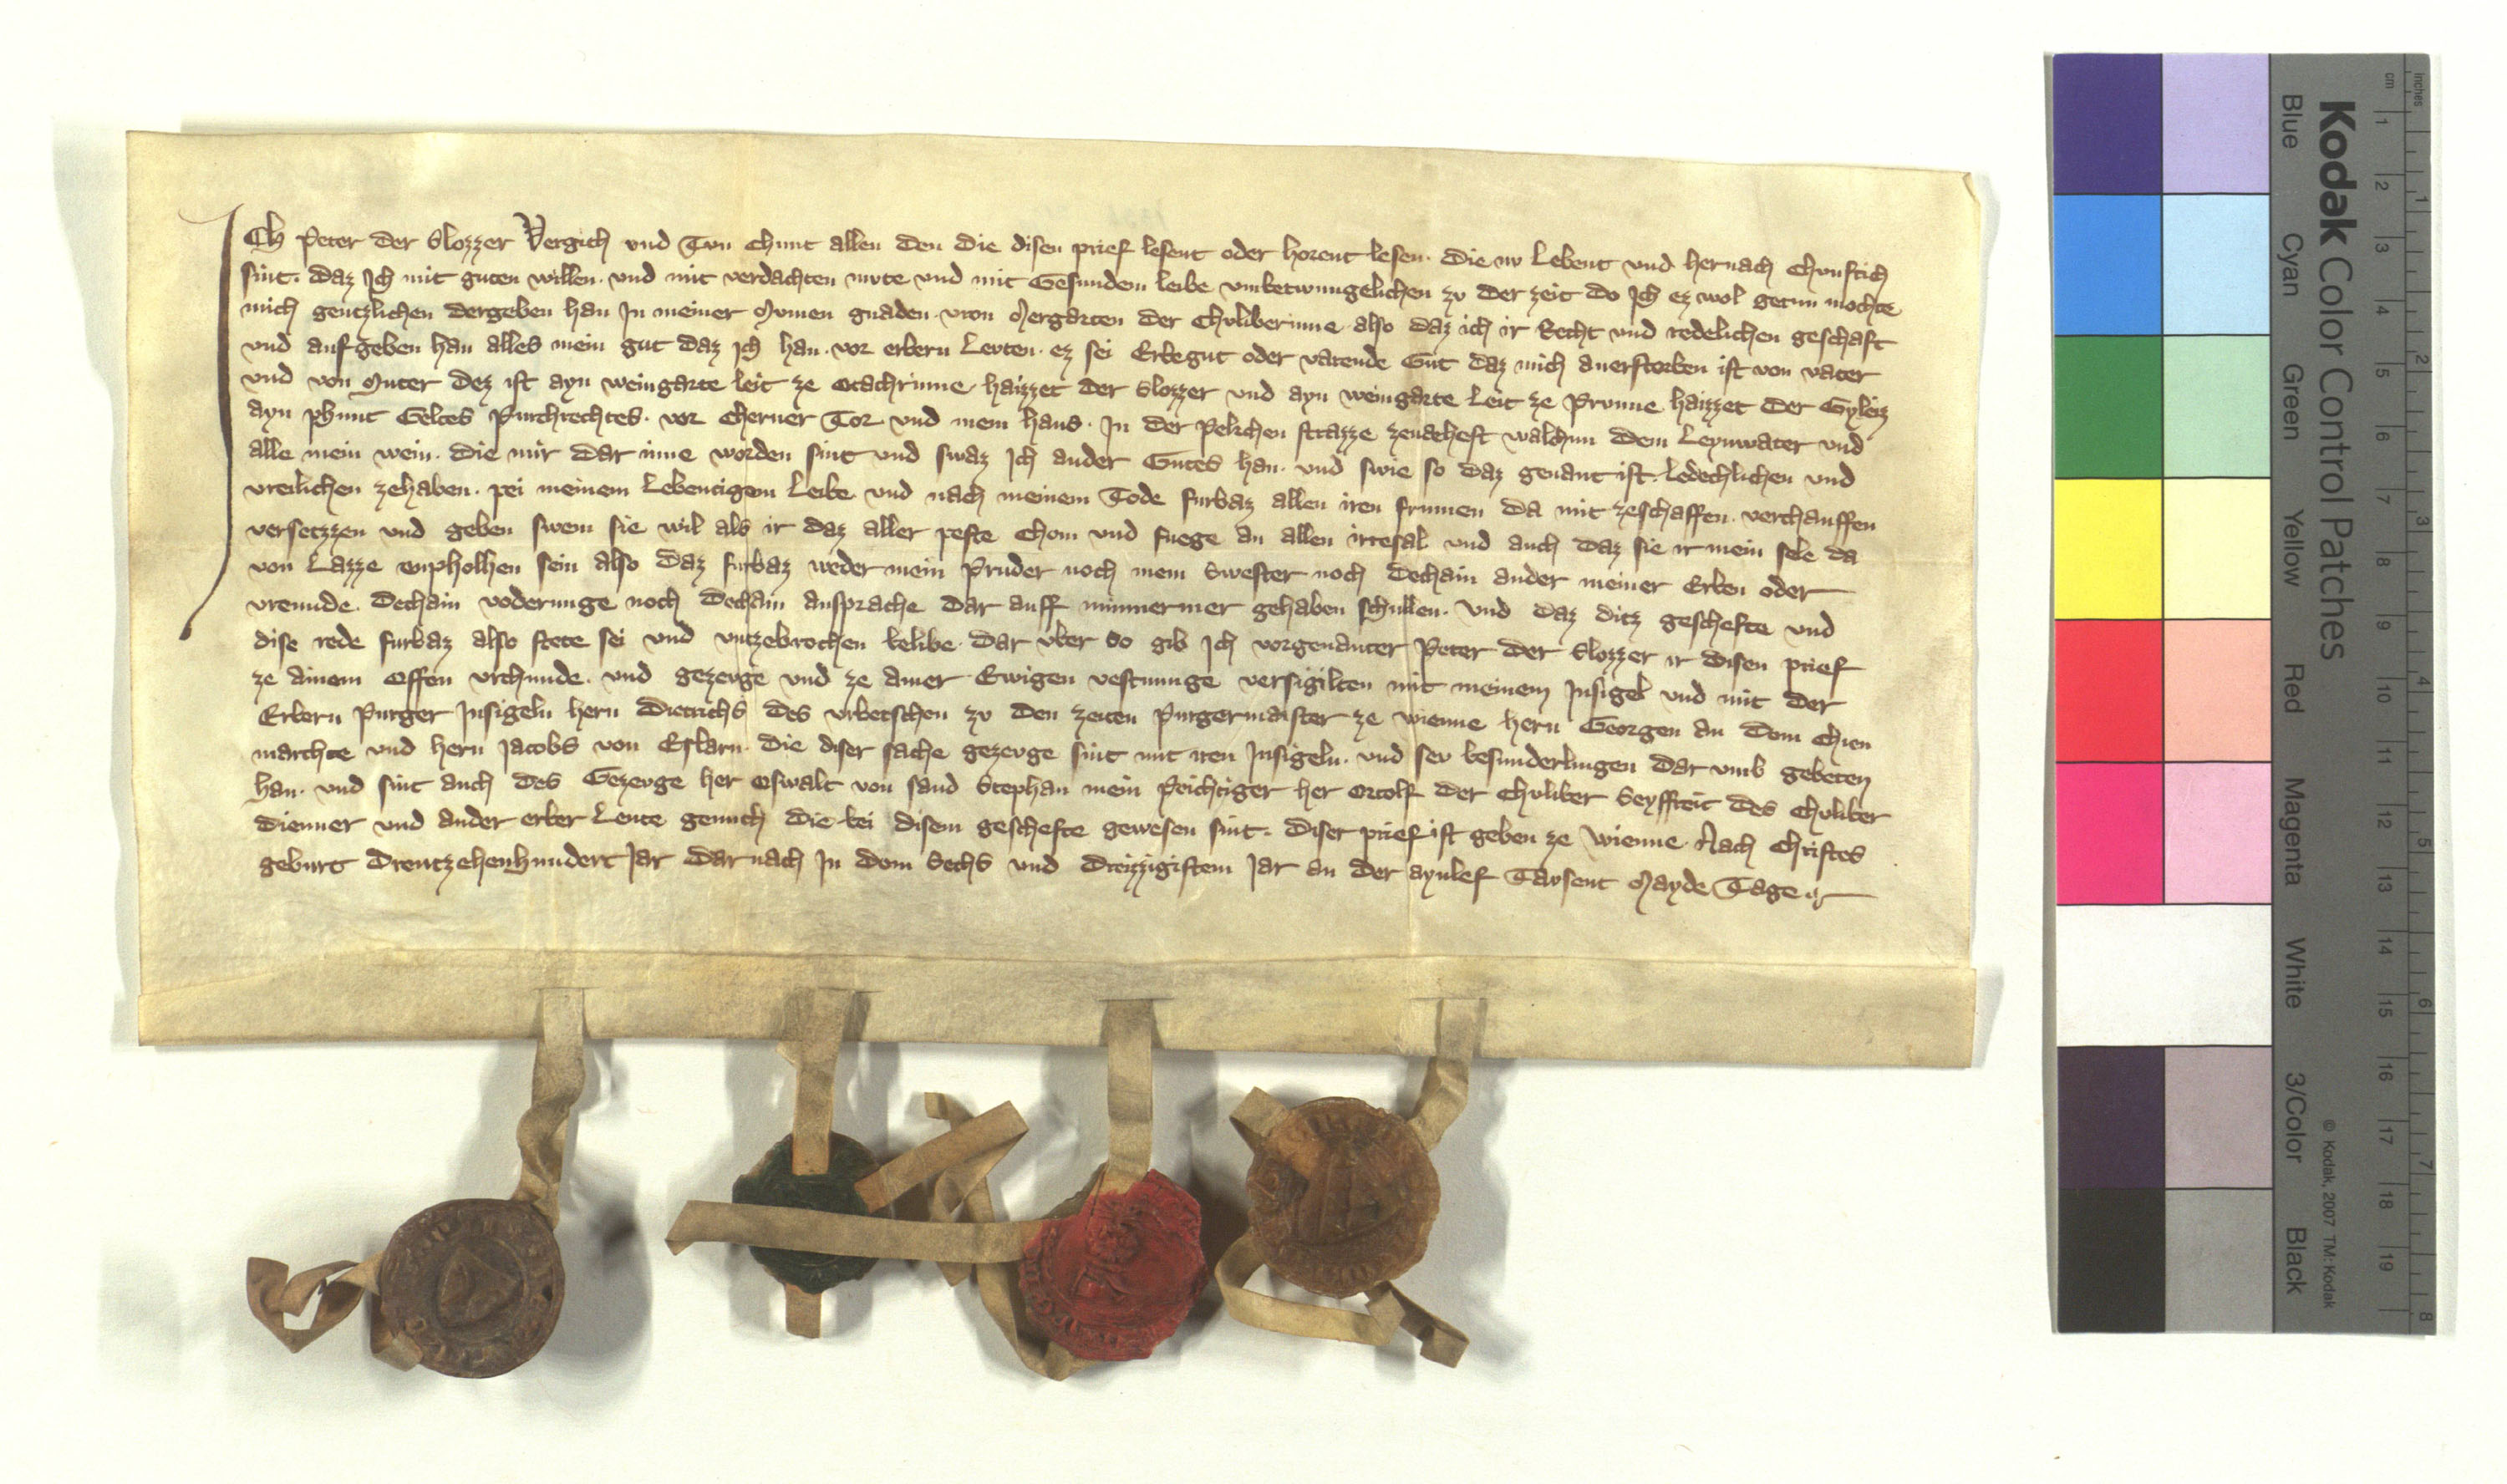 ICh Peter der Slozzer Vergich und Tvn chunt allen den die disen prief lesent oder horent lesen. die nv Lebent und hernach chvnftich
sint. daz Ich mit guten willen. und mit verdachten mvte und mit Gesundem leibe vmbetwungelichen zv der zeit do Ich ez wol getun mochte
mich gentzlichen dergeben han In meiner Mvmen gnaden. vron Mergarten der Chvliberinne also daz ich ir Recht und redelichen geschaft
und aufgeben han alles mein gut daz Ich han. vor erbern Levten. ez sei Erbegut oder varende Gut daz mich anerstorben ist von vater
und von Muter dez ist ayn weingarte leit ze Otachrinne haizzet der Slozzer und ayn weingarte Leit ze Prvnne haizzet der Gyleiz
ayn phunt Geltes Purchrechtes. vor Cherner Tor und mein haus. In der Pekchen strazze zenaheft walchun dem Leynwater und
alle mein wein. die mir dar inne worden sint und swaz Ich ander Gutes han. und swie so daz genant ist. Ledechlichen und
vreilichen zehaben. pei meinem Lebentigem Leibe und nach meinem Tode furbaz allen iren frumen da mit zeschaffen. verchauffen
versetzzen und geben swem sie wil als ir daz aller peste chom und fuege an allen irresal und auch daz sie ir mein sele da
von Lazze enpholhen sein also daz furbaz weder mein Pruder noch mein Swester noch dechain ander meiner Erben oder
vreunde. dechain voderunge noch dechain ansprache dar auff nimmermer gehaben schullen. und daz ditz geschefte und
dise rede furbaz also stete sei und vntzebrochen belibe. dar vber so gib Ich vorgenanter Peter der Slozzer ir disen prief
ze ainem offen vrchunde. und gezevge und ze ainer Ewigen vestnunge versigilten mit meinem Insigel und mit der
Erbern Purger Insigeln hern Dietrichs des vrbetschen zv den zeiten Purgermaister ze wienne hern Georgen an dem Chien
marchte und hern Jacobs von Eslarn. die diser sache gezevge sint mit iren Insigeln. und sev besunderlingen dar vmb gebeten
han. und sint auch des Gezevge her Oswalt von sand Stephan mein Peichtiger her Ortolf der Chvliber Seyffreit des Chvliber
dienner und ander erber Leute genuch die bei disem geschefte gewesen sint. diser prief ist geben ze wienne. Nach Christes
geburt dreutzehenhundert Jar dar nach In dem Sechs und dreizzigistem Jar an der aynlef Tavsent Mayde Tage
Kodak Color Control Patches
Blue Cyan Green Yellow Red Magenta White 3/Color Black
© Kodak, 2007 TM: Kodak
cm 1 2 3 4 5 6 7 8 9 10 11 12 13 14 15 16 17 18 19
inches 1 2 3 4 5 6 7 8